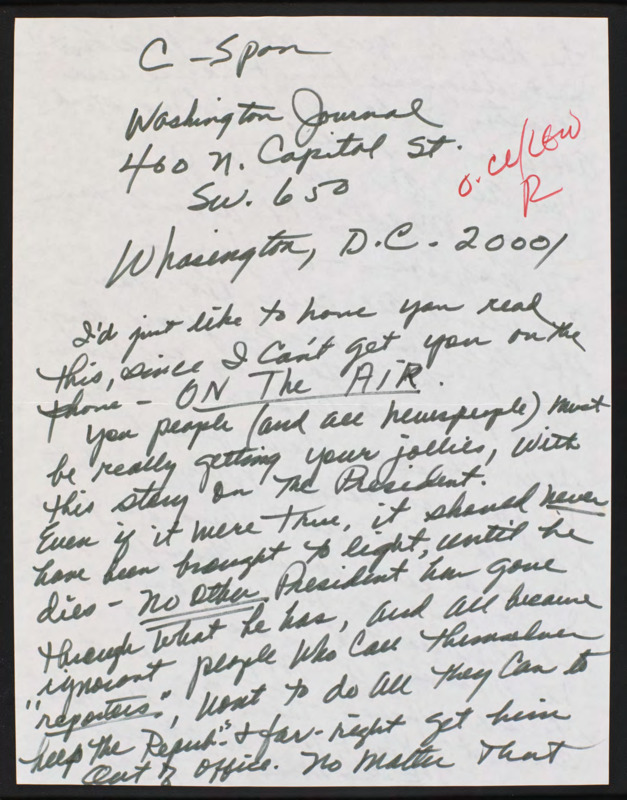 C-Span
Washington Journal
400 N. Capital St.
Su. 650
Whasington, D.C. 20001
R
I'd just like to have you read
this, since I Can't get you on the
phone - ON The AIR.
You people (and all newspeople) must
be really getting your jollies, with
this story on The President.
Even if it were True, it should never
have been brought to light, until he
dies - no other President has gone
through what he has, and all because
ignorant people who Call themselves
"reporters", want to do all they Can to
help the Repub's & far-right get him
Out of office. No matter that